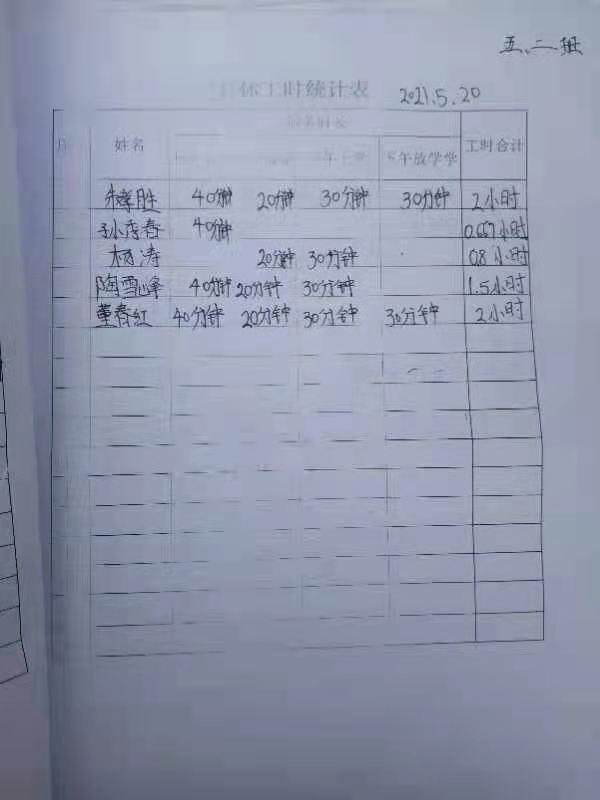 五、二班
工时统计表 2021.5.20
姓名 工时合计
午放学
朱孝胜 40分钟 20分钟 30分钟 30分钟 2小时
40分钟 0.667小时
杨涛 20分钟 30分钟 0.8小时
陶雪峰 40分钟 20分钟 30分钟 1.5小时
董春红 40分钟 20分钟 30分钟 30分钟 2小时